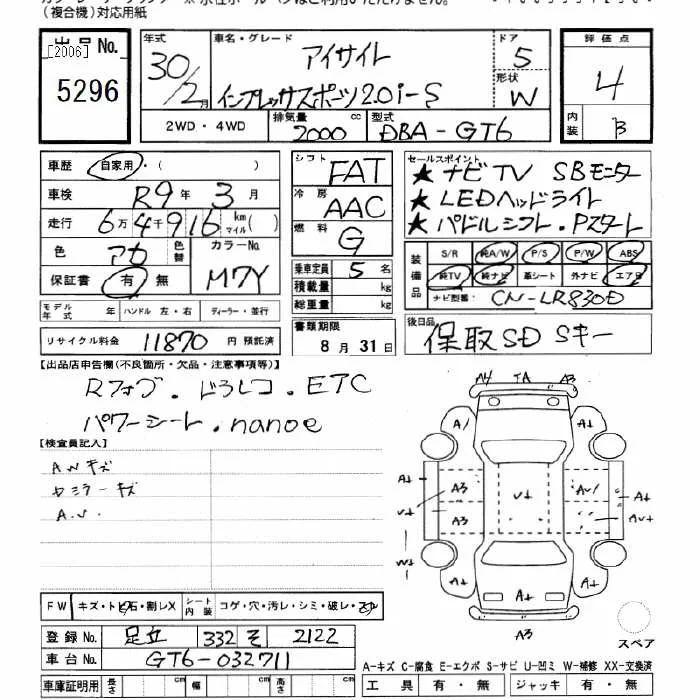 (複合機)対応用紙
出品No.
[2006]
5296
年式 車名・グレード ドア 評価点
30/2月 アイサイト 5 4
インプレッサスポーツ2.0i-S 形状 W 内装 B
2WD・4WD 排気量 2000 cc 型式 DBA-GT6
車歴 自家用・( )
車検 R9年 3月
走行 6万4千916 km マイル( )
色 アカ 色替 カラーNo. M7Y
保証書 有・無
シフト FAT
冷房 AAC
燃料 G
乗車定員 5名
積載量 kg
総重量 kg
セールスポイント
★ナビTV SBモニター
★LEDヘッドライト
★パドルシフト.Pスタート
装備品 S/R 純A/W P/S P/W ABS
純TV 純ナビ 革シート 外ナビ エアB
ナビ型番 CN-LR830D
モデル年式 年 ハンドル 左・右 ディーラー・並行
リサイクル料金 11870 円 預託済
書類期限 8月31日
後日品 保取SD Sキー
【出品店申告欄(不良箇所・欠品・注意事項等)】
Rフォグ.ドラレコ.ETC
パワーシート.nanoe
【検査員記入】
AWキズ
Cミラーキズ
A.U.
A4 TA A3
A1 A1
A1 A3 U1 AU1 A1
U1 A3 AU1
W1
A1 A1 A1
A3
スペア
FW キズ・トビ石・割レX シート内装 コゲ・穴・汚レ・シミ・破レ・スレ
登録No. 足立 332 そ 2122
車台No. GT6-032711
A-キズ C-腐食 E-エクボ S-サビ U-凹ミ W-補修 XX-交換済
車庫証明用 長さ cm 幅 cm 高さ cm 工具 有・無 ジャッキ 有・無